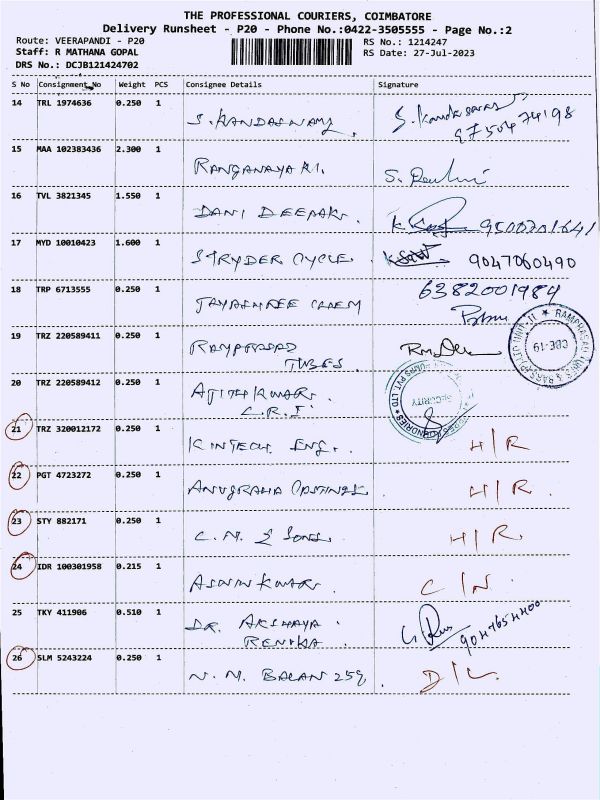 THE PROFESSIONAL COURIERS, COIMBATORE
Delivery Runsheet - P20 - Phone No.:0422-3505555 - Page No.:2
Route: VEERAPANDI - P20 RS No.: 1214247
Staff: R MATHANA GOPAL RS Date: 27-Jul-2023
DRS No.: DCJB121424702
S No Consignment No Weight PCS Consignee Details Signature
14 TRL 1974636 0.250 1 S. KANDASWAMY
15 MAA 102383436 2.300 1 RANGANAYAKI. S.
16 TVL 3821345 1.550 1 DANI DEEPAK. 9500701641
17 MYD 10010423 1.600 1 STRYDER CYCLE. 9047060490
18 TRP 6713555 0.250 1 JAYASHREE CHEM 6382001984
19 TRZ 220589411 0.250 1 RAMPRASAD
TUBES.
20 TRZ 220589412 0.250 1 AJITH KUMAR.
C.R.I.
SECURITY
21 TRZ 320012172 0.250 1 KINTECH ENG. H/R
22 PGT 4723272 0.250 1 ANUGRAHA CASTINGS H/R.
23 STY 882171 0.250 1 C. M. & SONS. H/R
24 IDR 100301958 0.215 1 ASWIN KUMAR. C/N.
25 TKY 411906 0.510 1 DR. AKSHAYA.
RENUKA
26 SLM 5243224 0.250 1 N. M. BALAN 259. D/L.